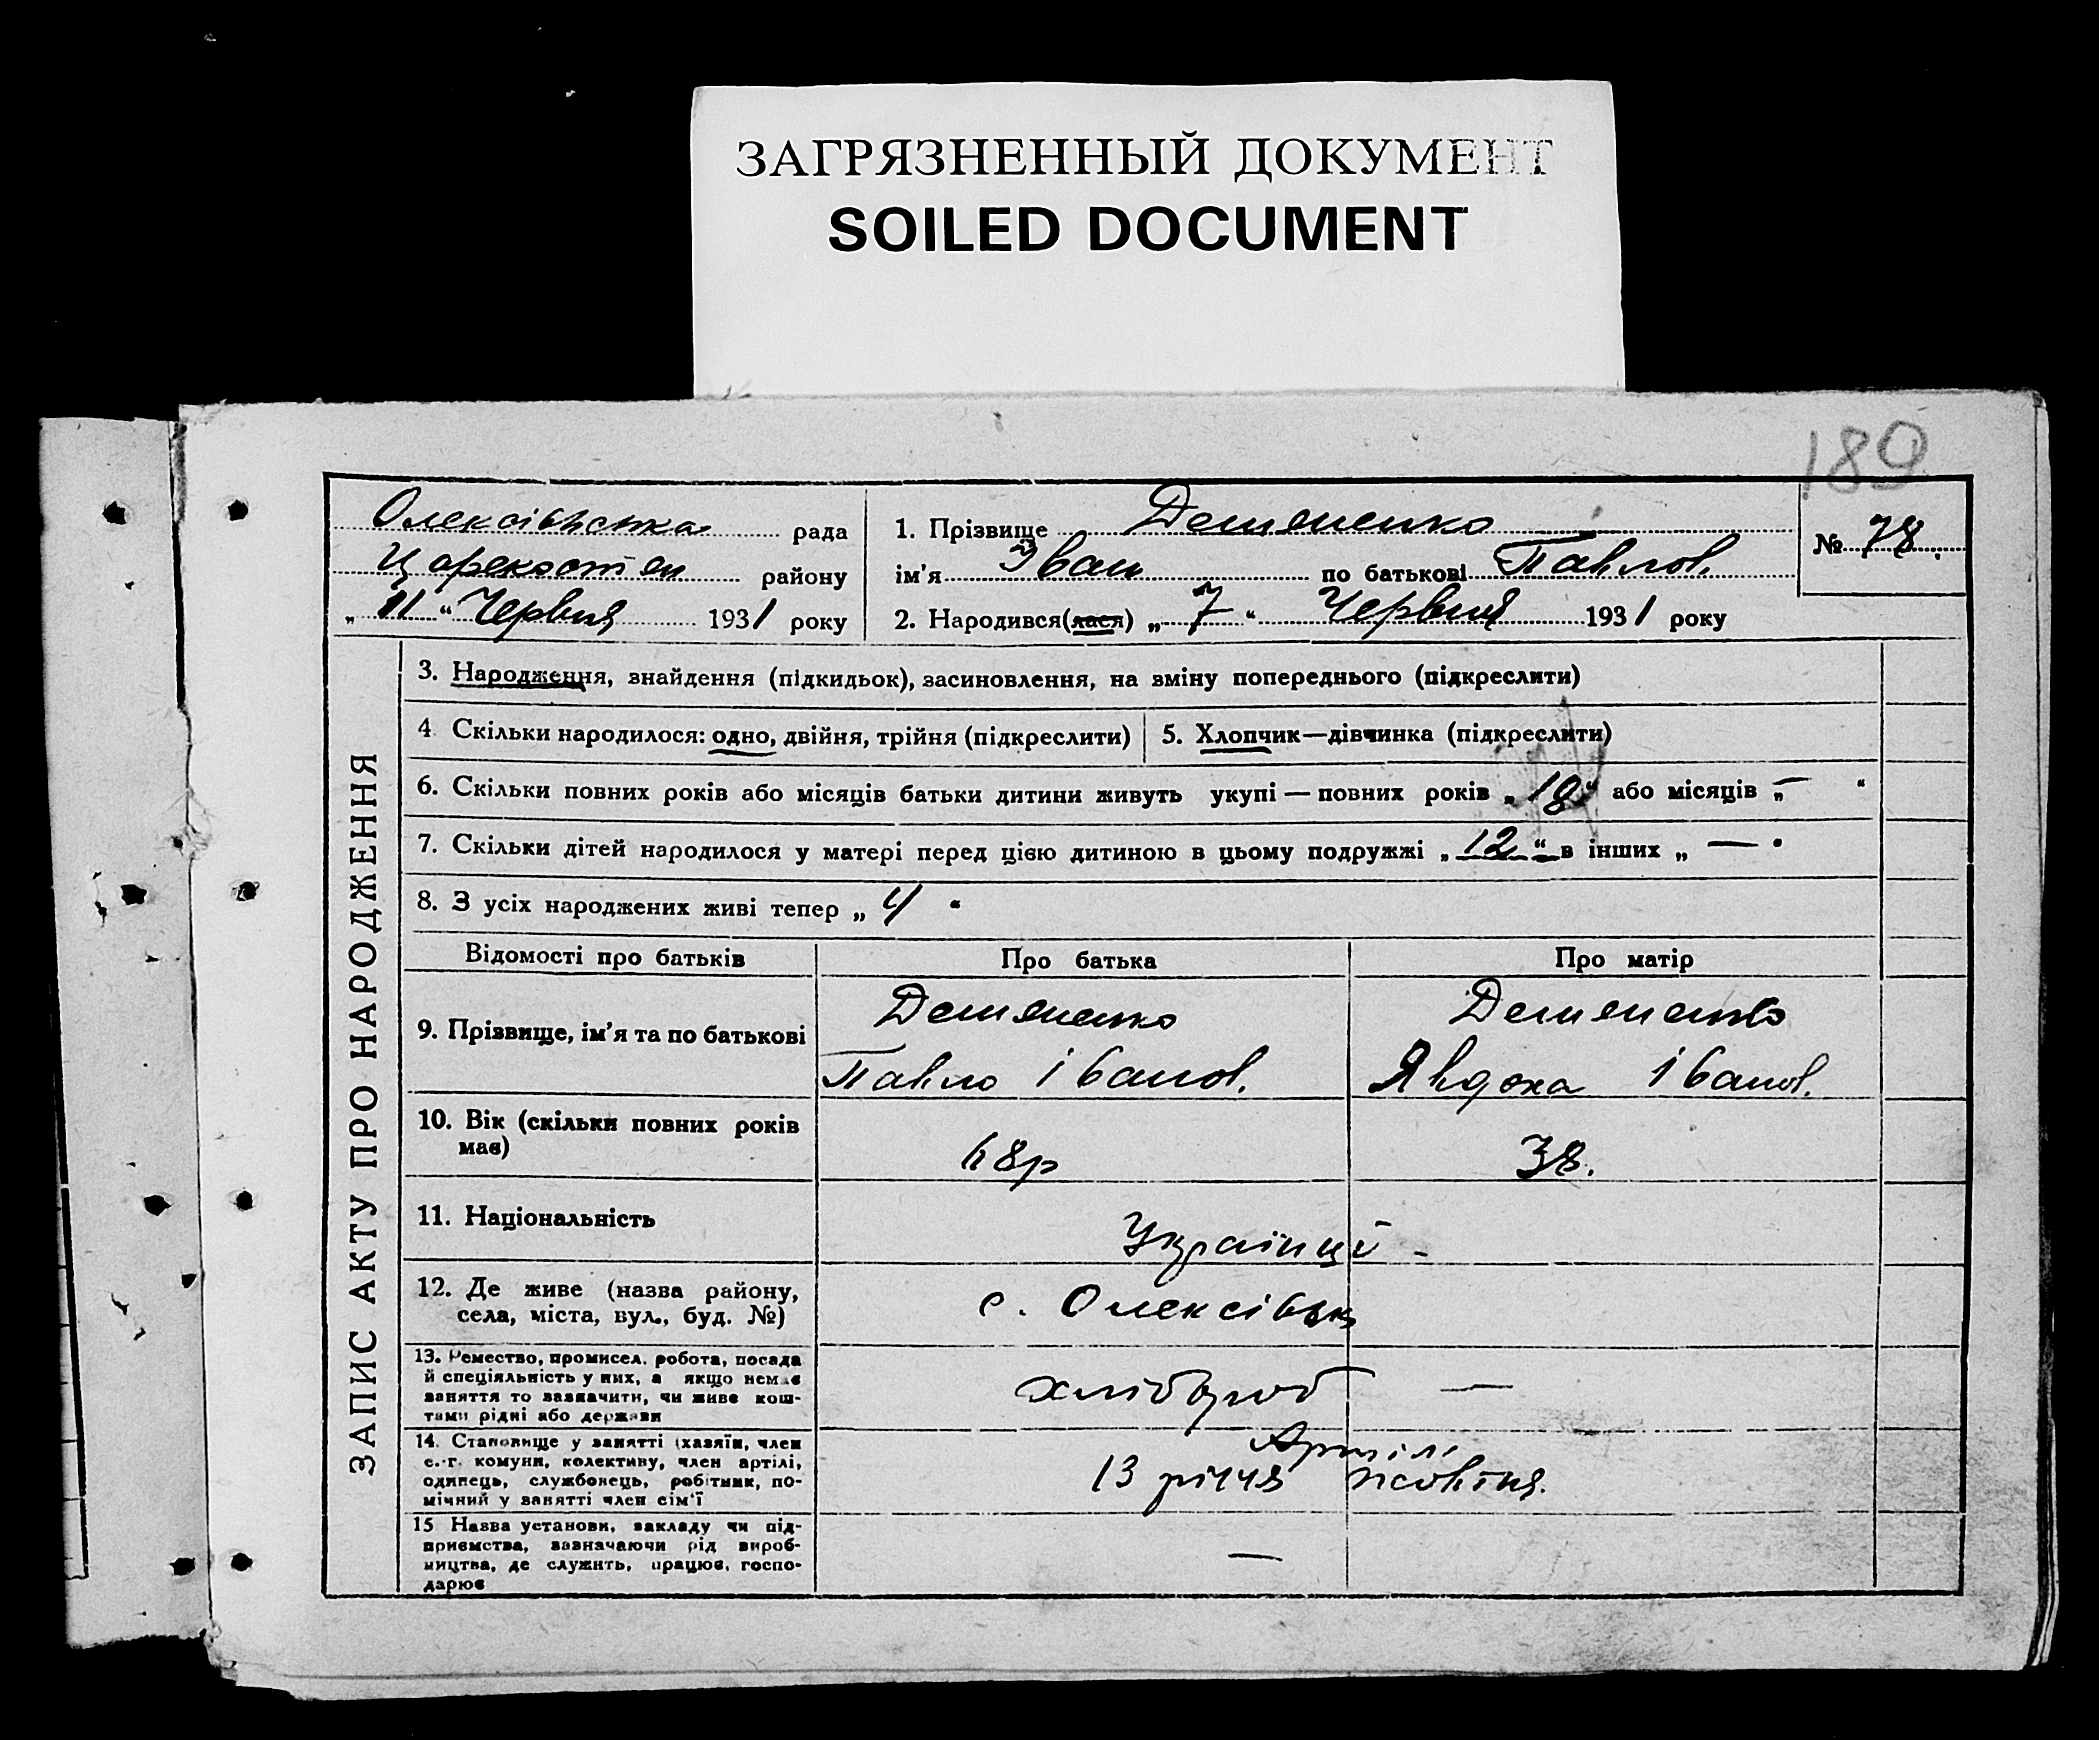 ЗАГРЯЗНЕННЫЙ ДОКУМЕНТ
SOILED DOCUMENT
189
Олексіівська рада
район
„ 11 “ Червня 1931 року
1. Прізвище Демяненко
ім'я Іван по батькові Павлов.
2. Народився(лася) „ 7 “ Червня 1931 року
№ 78.
ЗАПИС АКТУ ПРО НАРОДЖЕННЯ
3. Народження, знайдення (підкидьок), засиновлення, на зміну попереднього (підкреслити)
4 Скільки народилося: одно, двійня, трійня (підкреслити)
5. Хлопчик—дівчинка (підкреслити)
6. Скільки повних років або місяців батьки дитини живуть укупі — повних років „ 18 “ або місяців „ — “
7. Скільки дітей народилося у матері перед цією дитиною в цьому подружжі „ 12 “ в інших „ — “
8. З усіх народжених живі тепер „ 4 “
Відомості про батьків Про батька Про матір
9. Прізвище, ім'я та по батькові
Демяненко
Павло Іванов.
Демяненко
Явдоха Іванов.
10. Вік (скільки повних років
має)
48р
38.
11. Національність
Українці -
12. Де живе (назва району,
села, міста, вул., буд. №)
с. Олексіівка
13. Ремество, промисел, робота, посада
й спеціяльність у них, а якщо немає
заняття то зазначити, чи живе кош-
тами рідні або держави
хлібороб —
14. Становище у занятті (хазяїн, член
с.-г. комуни, колективу, член артілі,
одинець, службовець, робітник, по-
мічний у занятті член сім'ї
Артілі
13 річчя Жовтня.
15 Назва установи, закладу чи під-
приємства, зазначаючи рід вироб-
ництва, де служить, працює, госпо-
дарює
—